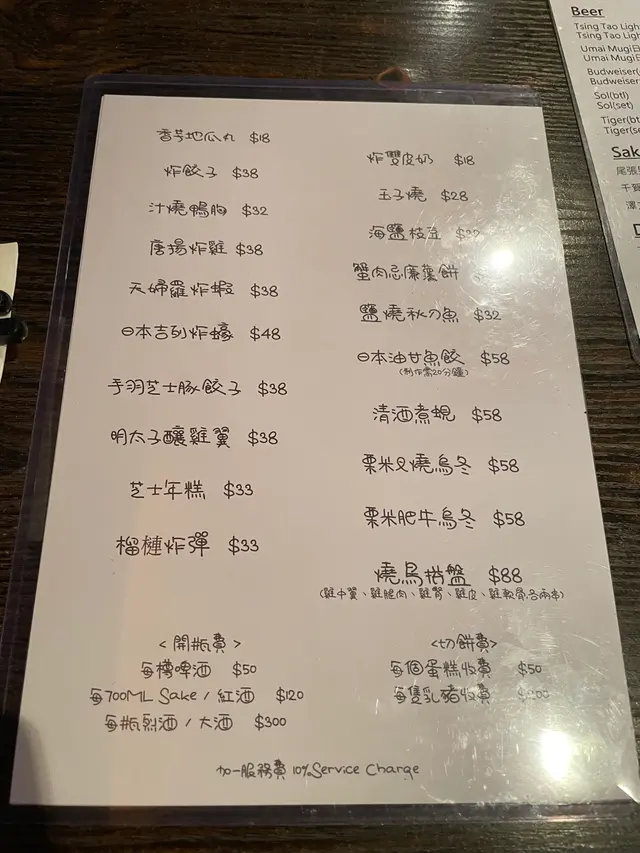 香芋地瓜丸 $18
炸餃子 $38
汁燒鴨胸 $32
唐揚炸雞 $38
天婦羅炸蝦 $38
日本吉列炸蠔 $48
手羽芝士豚餃子 $38
明太子釀雞翼 $38
芝士年糕 $33
榴槤炸彈 $33
炸雙皮奶 $18
玉子燒 $28
海鹽枝豆
蟹肉忌廉薯餅
鹽燒秋刀魚 $32
日本油甘魚餃 $58
(制作需20分鐘)
清酒煮蜆 $58
粟米叉燒烏冬 $58
粟米肥牛烏冬 $58
燒鳥拼盤 $88
(雞中翼、雞腿肉、雞腎、雞皮、雞軟骨各兩串)
<開瓶費>
每樽啤酒 $50
每700ML Sake / 紅酒 $120
每瓶烈酒 / 大酒 $300
<切餅費>
每個蛋糕收費 $50
每隻乳豬收費
加一服務費 10% Service Charge
Beer
Tsing Tao Ligh
Tsing Tao Ligh
Umai Mugi
Umai Mugi
Budweiser(
Budweiser
Sol(btl)
Sol(set)
Tiger(bt
Tiger(se
Sak
尾張
千賀
澤